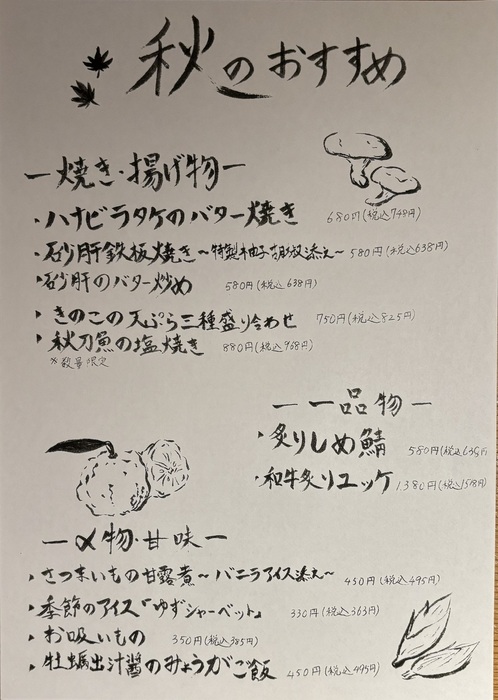 秋のおすすめ
ー焼き・揚げ物ー
・ハナビラタケのバター焼き 680円(税込748円)
・砂肝鉄板焼き～特製柚子胡椒添え～ 580円(税込638円)
・砂肝のバター炒め 580円(税込638円)
・きのこの天ぷら三種盛り合わせ 750円(税込825円)
・秋刀魚の塩焼き 880円(税込968円)
※数量限定
ー一品物ー
・炙りしめ鯖 580円(税込638円
・和牛炙りユッケ 1,380円(税込1518円)
ー〆物・甘味ー
・さつまいもの甘露煮～バニラアイス添え～ 450円(税込495円)
・季節のアイス「ゆずシャーベット」 330円(税込363円)
・お吸いもの 350円(税込385円)
・牡蠣出汁醤のみょうがご飯 450円(税込495円)